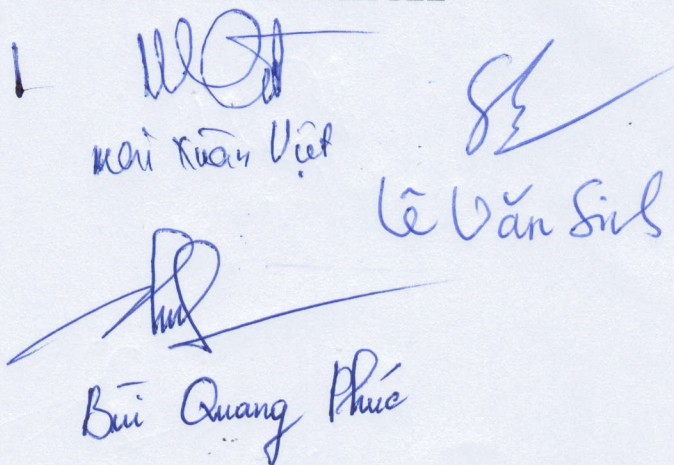 Mai Xuân Việt
Lê Văn Sinh
Bùi Quang Phúc